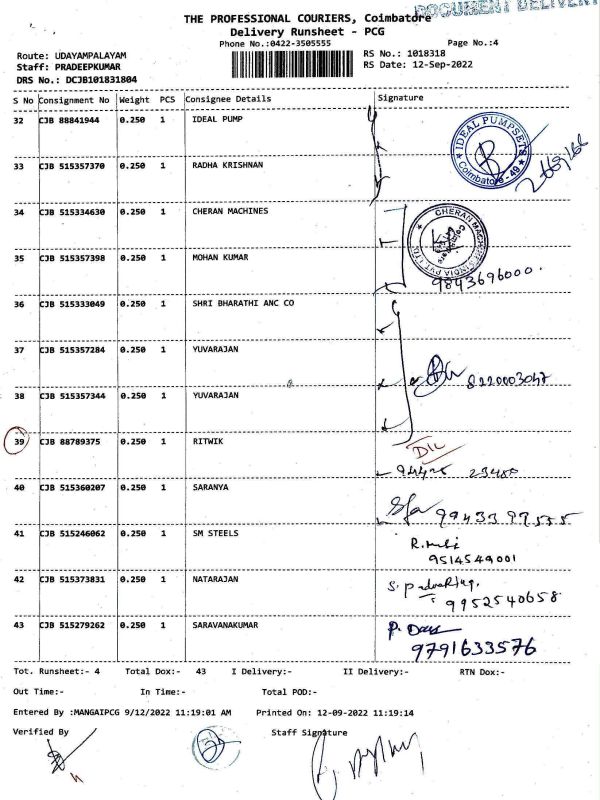 DOCUMENT DELIVERY
THE PROFESSIONAL COURIERS, Coimbatore
Delivery Runsheet - PCG
Phone No.:0422-3505555 Page No.:4
Route: UDAYAMPALAYAM RS No.: 1018318
Staff: PRADEEPKUMAR RS Date: 12-Sep-2022
DRS No.: DCJB101831804
S No Consignment No Weight PCS Consignee Details Signature
32 CJB 88841944 0.250 1 IDEAL PUMP
IDEAL PUMPSETS
Coimbatore - 49
33 CJB 515357370 0.250 1 RADHA KRISHNAN
34 CJB 515334630 0.250 1 CHERAN MACHINES
CHERAN MACHINES INDIA PVT LTD.
35 CJB 515357398 0.250 1 MOHAN KUMAR
9843696000.
36 CJB 515333049 0.250 1 SHRI BHARATHI ANC CO
37 CJB 515357284 0.250 1 YUVARAJAN
8220003047
38 CJB 515357344 0.250 1 YUVARAJAN
39 CJB 88789375 0.250 1 RITWIK
DIL
94425 23450
40 CJB 515360207 0.250 1 SARANYA
99433 97555
41 CJB 515246062 0.250 1 SM STEELS
9514549001
42 CJB 515373831 0.250 1 NATARAJAN
9952540658
43 CJB 515279262 0.250 1 SARAVANAKUMAR
9791633576
Tot. Runsheet:- 4 Total Dox:- 43 I Delivery:- II Delivery:- RTN Dox:-
Out Time:- In Time:- Total POD:-
Entered By :MANGAIPCG 9/12/2022 11:19:01 AM Printed On: 12-09-2022 11:19:14
Verified By Staff Signature